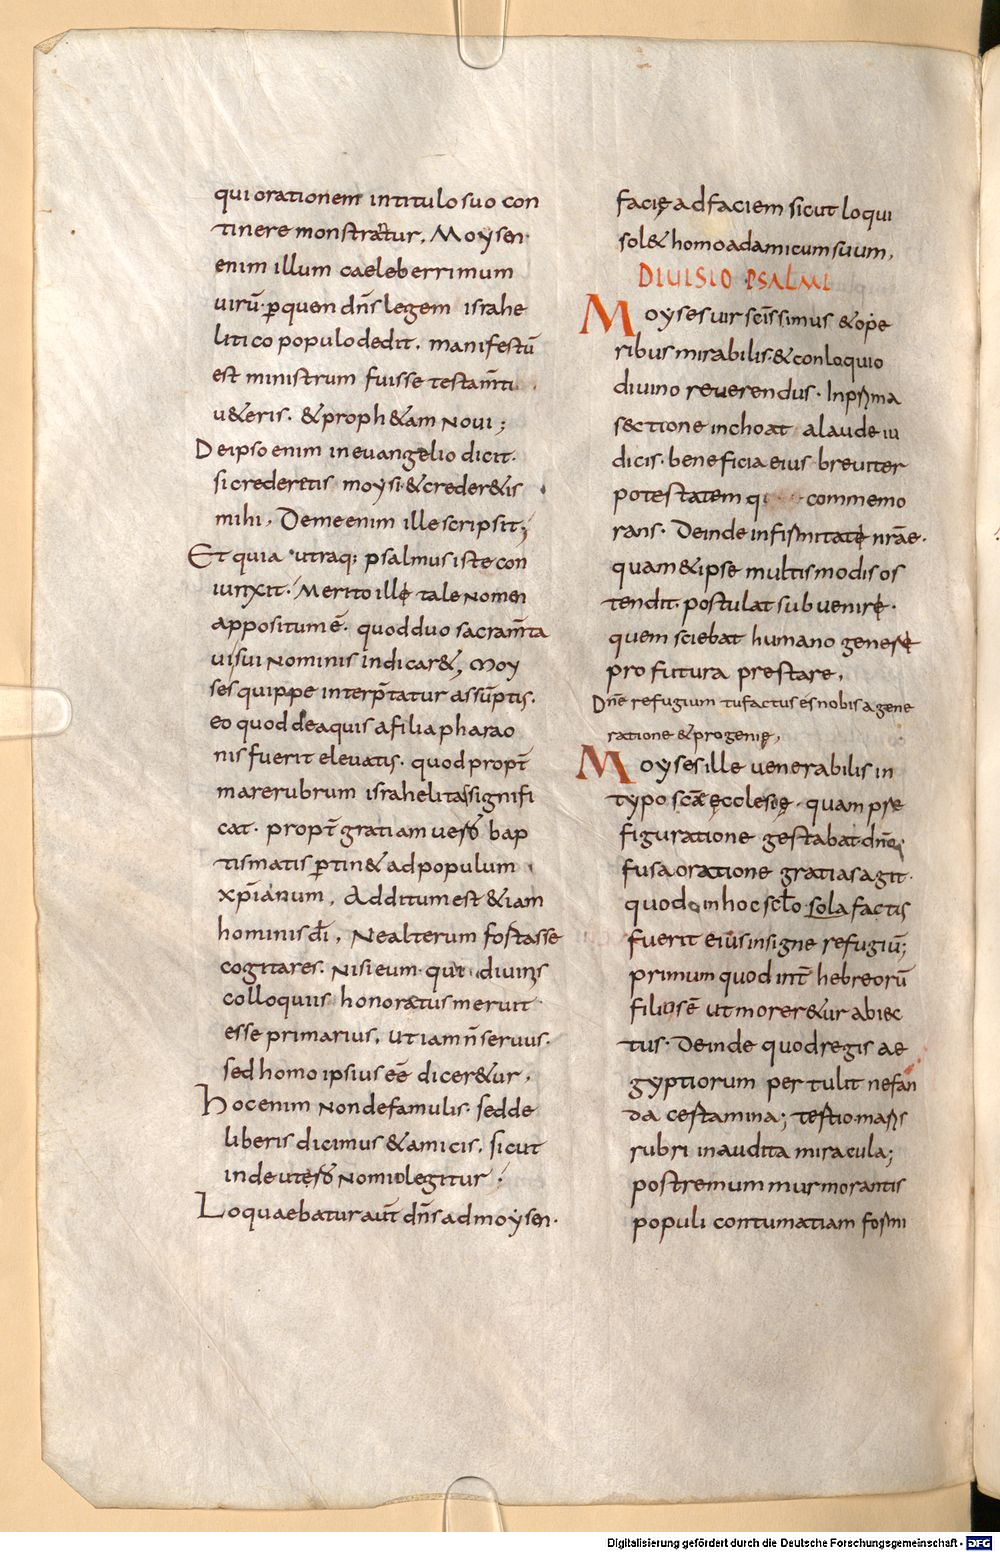 qui orationem in titulo suo con
tinere monstratur. Moysen
enim illum caeleberrimum
uirū ꝑ quen dn̄s legem israhe
litico populo dedit. manifestū
est ministrum fuisse testam̄ti
u&eris. & proph&am Noui;
De ipso enim in euangelio dicit.
si crederetis moysi & creder&is
mihi, De me enim ille scripsit;
Et quia utraq; psalmus iste con
iunxit. Merito illę tale Nomen
appositum ē. quod duo sacram̄ta
ui sui Nominis indicar&, Moy
ses quippe interp̄tatur assūptis.
eo quod de aquis a filia pharao
nis fuerit eleuatis. quod propt̄
mare rubrum israhelitas signifi
cat. propt̄ gratiam uero bap
tismatis ꝑtin& ad populum
xp̄ianum, Additum est & iam
hominis dī, Ne alterum fostasse
cogitares. Nisi eum qui diuinis
colloquiis honoratus meruit
esse primarius, ut iam n̄ seruus.
sed homo ipsius eē dicer&ur,
Hoc enim Non de famulis. sed de
liberis dicimus & amicis, sicut
in deutero Nomio legitur;
Loquaebatur aut̄ dn̄s ad moysen.
facię ad faciem sicut loqui
sol& homo ad amicum suum,
DIUISIO PSALMI
Moyses uir sc̄issimus & ope
ribus mirabilis. & conloquio
diuino reuerendus. In prima
sectione inchoat a laude iu
dicis. beneficia eius breuiter
potestatem q commemo
rans. Deinde infirmitatę nrāe.
quam & ipse multis modis os
tendit. postulat sub uenirę.
quem sciebat humano generę
pro futura prestare,
Dn̄e refugium tu factus es nobis a gene
ratione & progenię,
Moyses ille uenerabilis in
typo sc̄ae ęcclesię. quam pre
figuratione gestabat. dn̄o
fusa oratione gratias agit.
quod in hoc sc̄lo sola factis
fuerit eius insigne refugiū;
primum quod int̄ hebreorū
filios ē ut morer&ur abiec
tus. Deinde quod regis ae
gyptiorum per tulit nefan
da cestamina; testio maris
rubri inaudita miracula;
postremum murmorantis
populi contumatiam formi
Digitalisierung gefördert durch die Deutsche Forschungsgemeinschaft - DFG